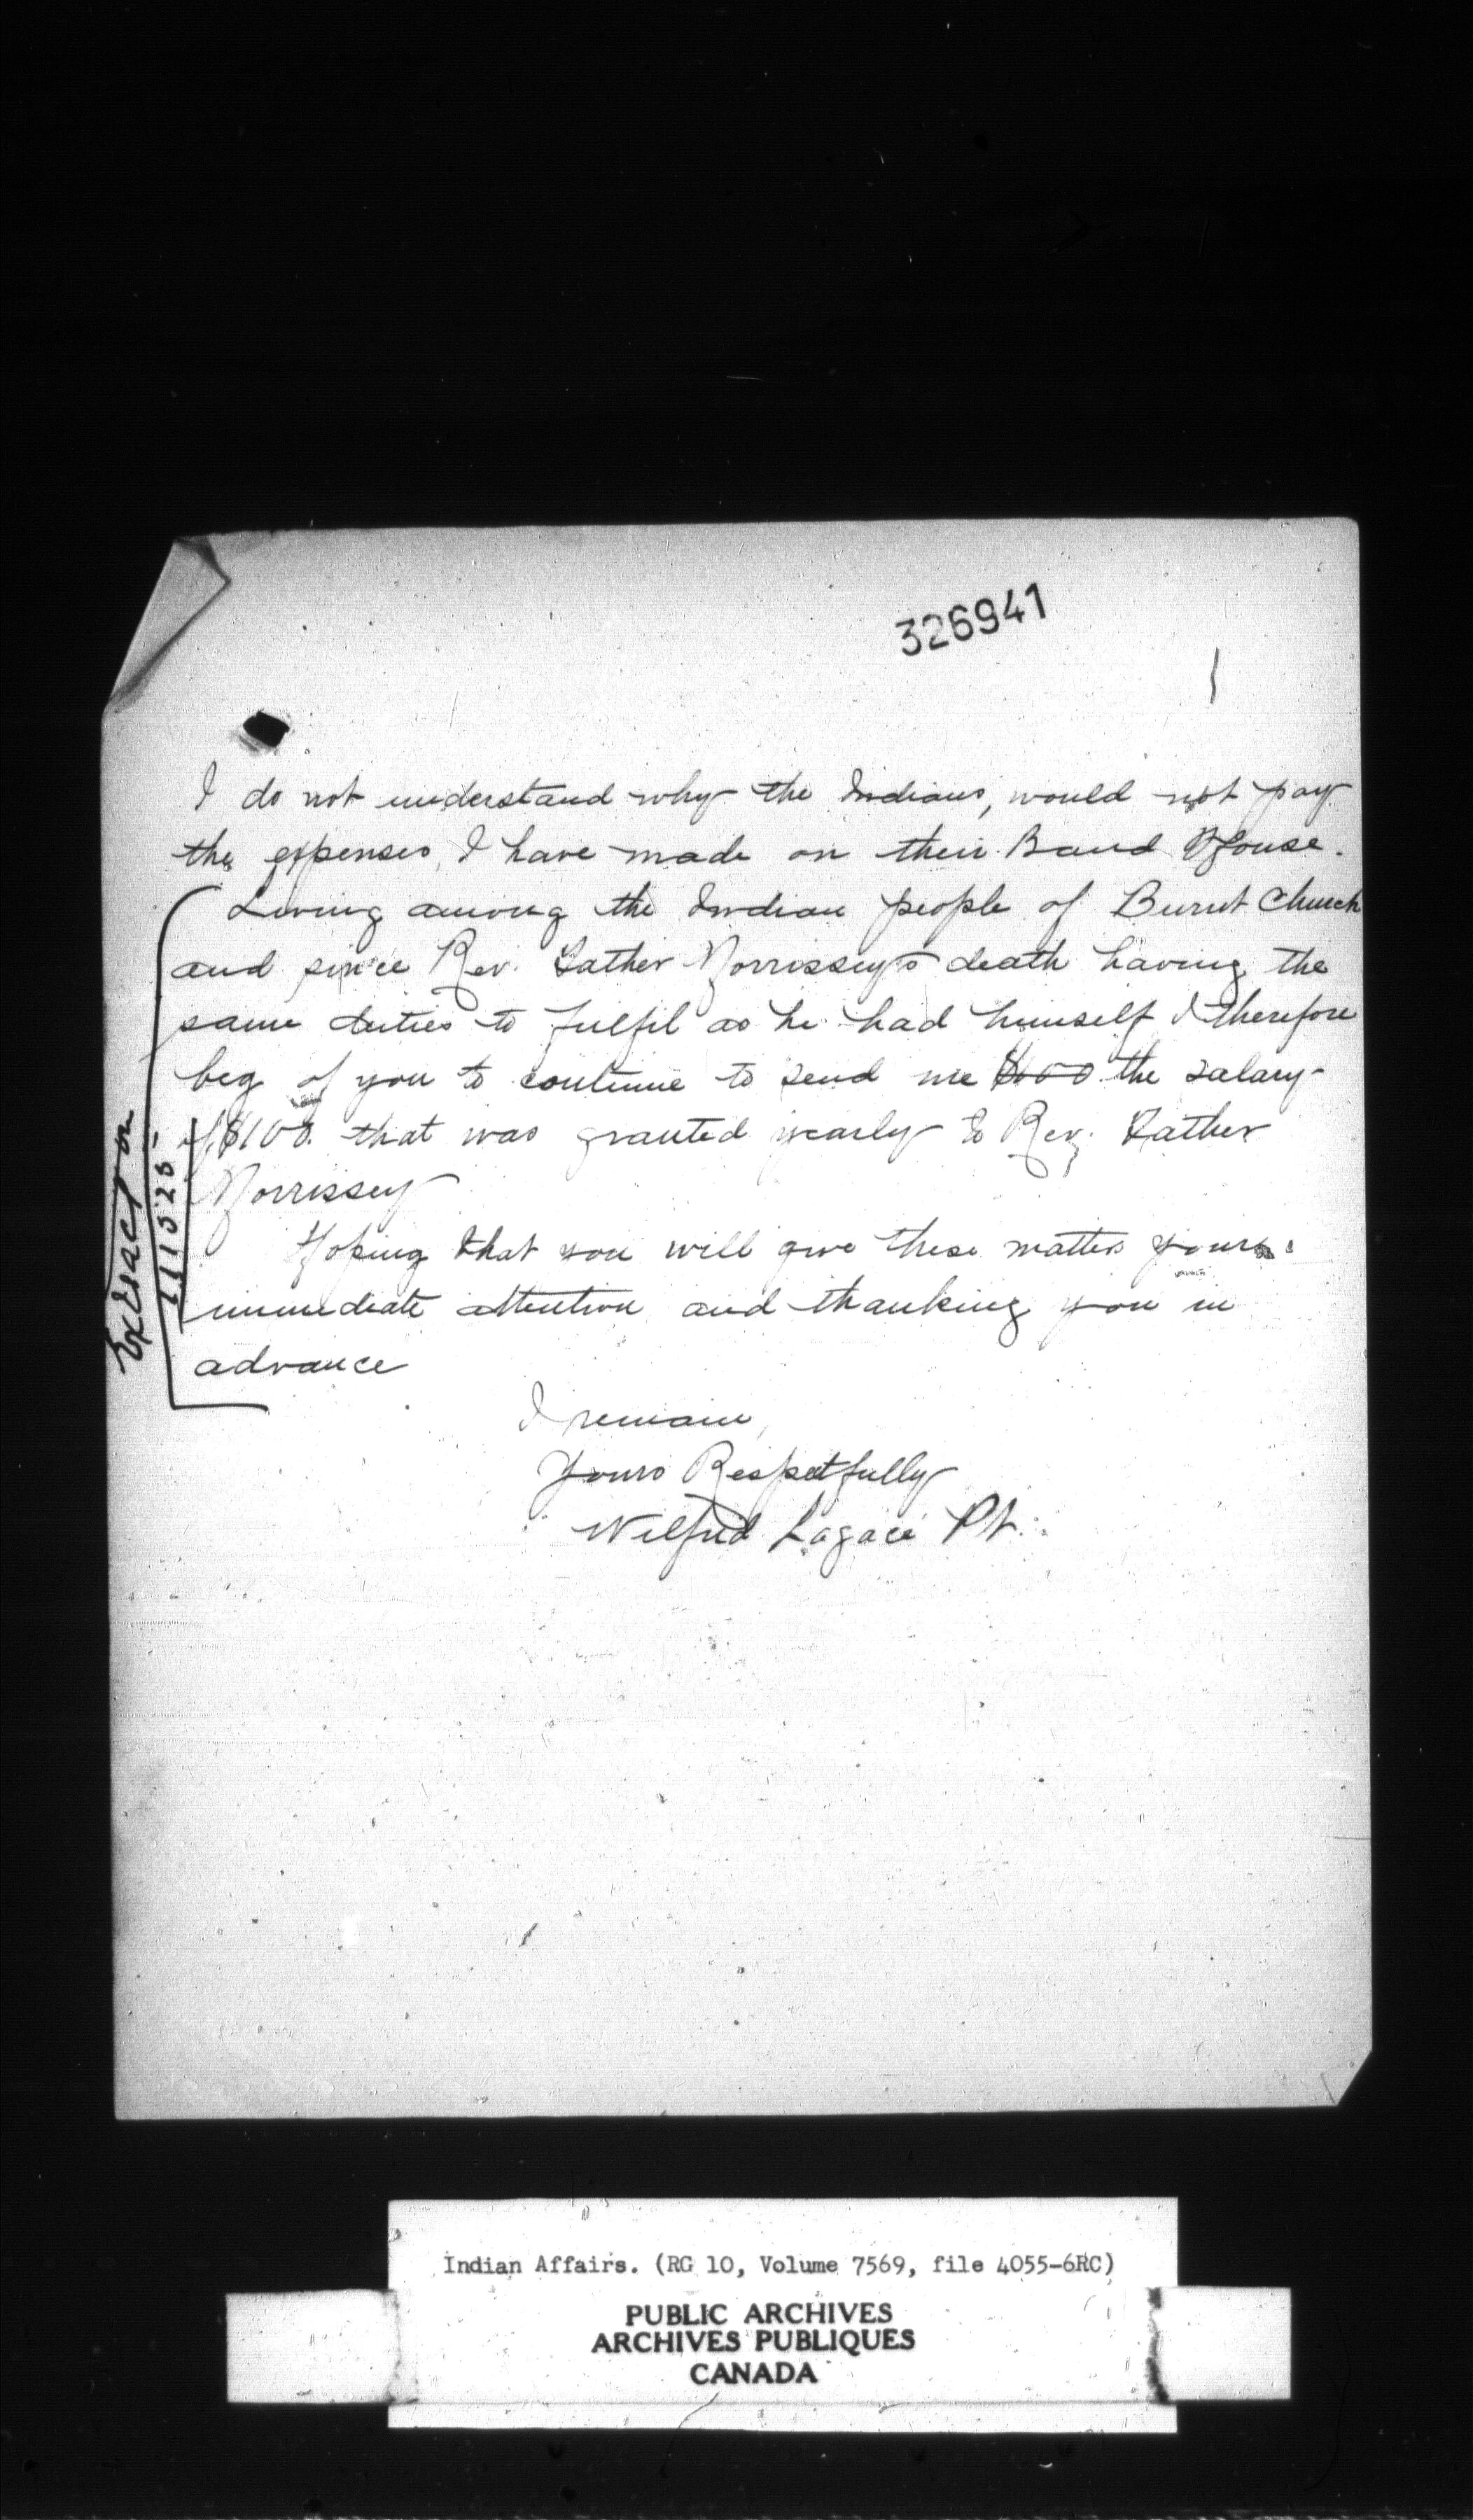 326941
I do not understand why the Indians, would not pay
the expenses, I have made on their Band House.
Living among the Indian people of Burnt Church
and since Rev. Father Morrissey's death having the
same duties to fulfil as he had himself I therefore
beg of you to continue to send me $100 the salary
of $100. that was granted yearly to Rev. Father
Morrissey
Hoping that you will give these matters your
immediate attention and thanking you in
advance
I remain,
Yours Respetfully
Wilfrid Lagacé Pt.
Extract on
111525-
Indian Affairs. (RG 10, Volume 7569, file 4055-6RC)
PUBLIC ARCHIVES
ARCHIVES PUBLIQUES
CANADA